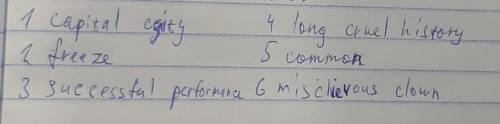 1 capital city
2 freeze
3 successful performance
4 long cruel history
5 common
6 mischievous clown